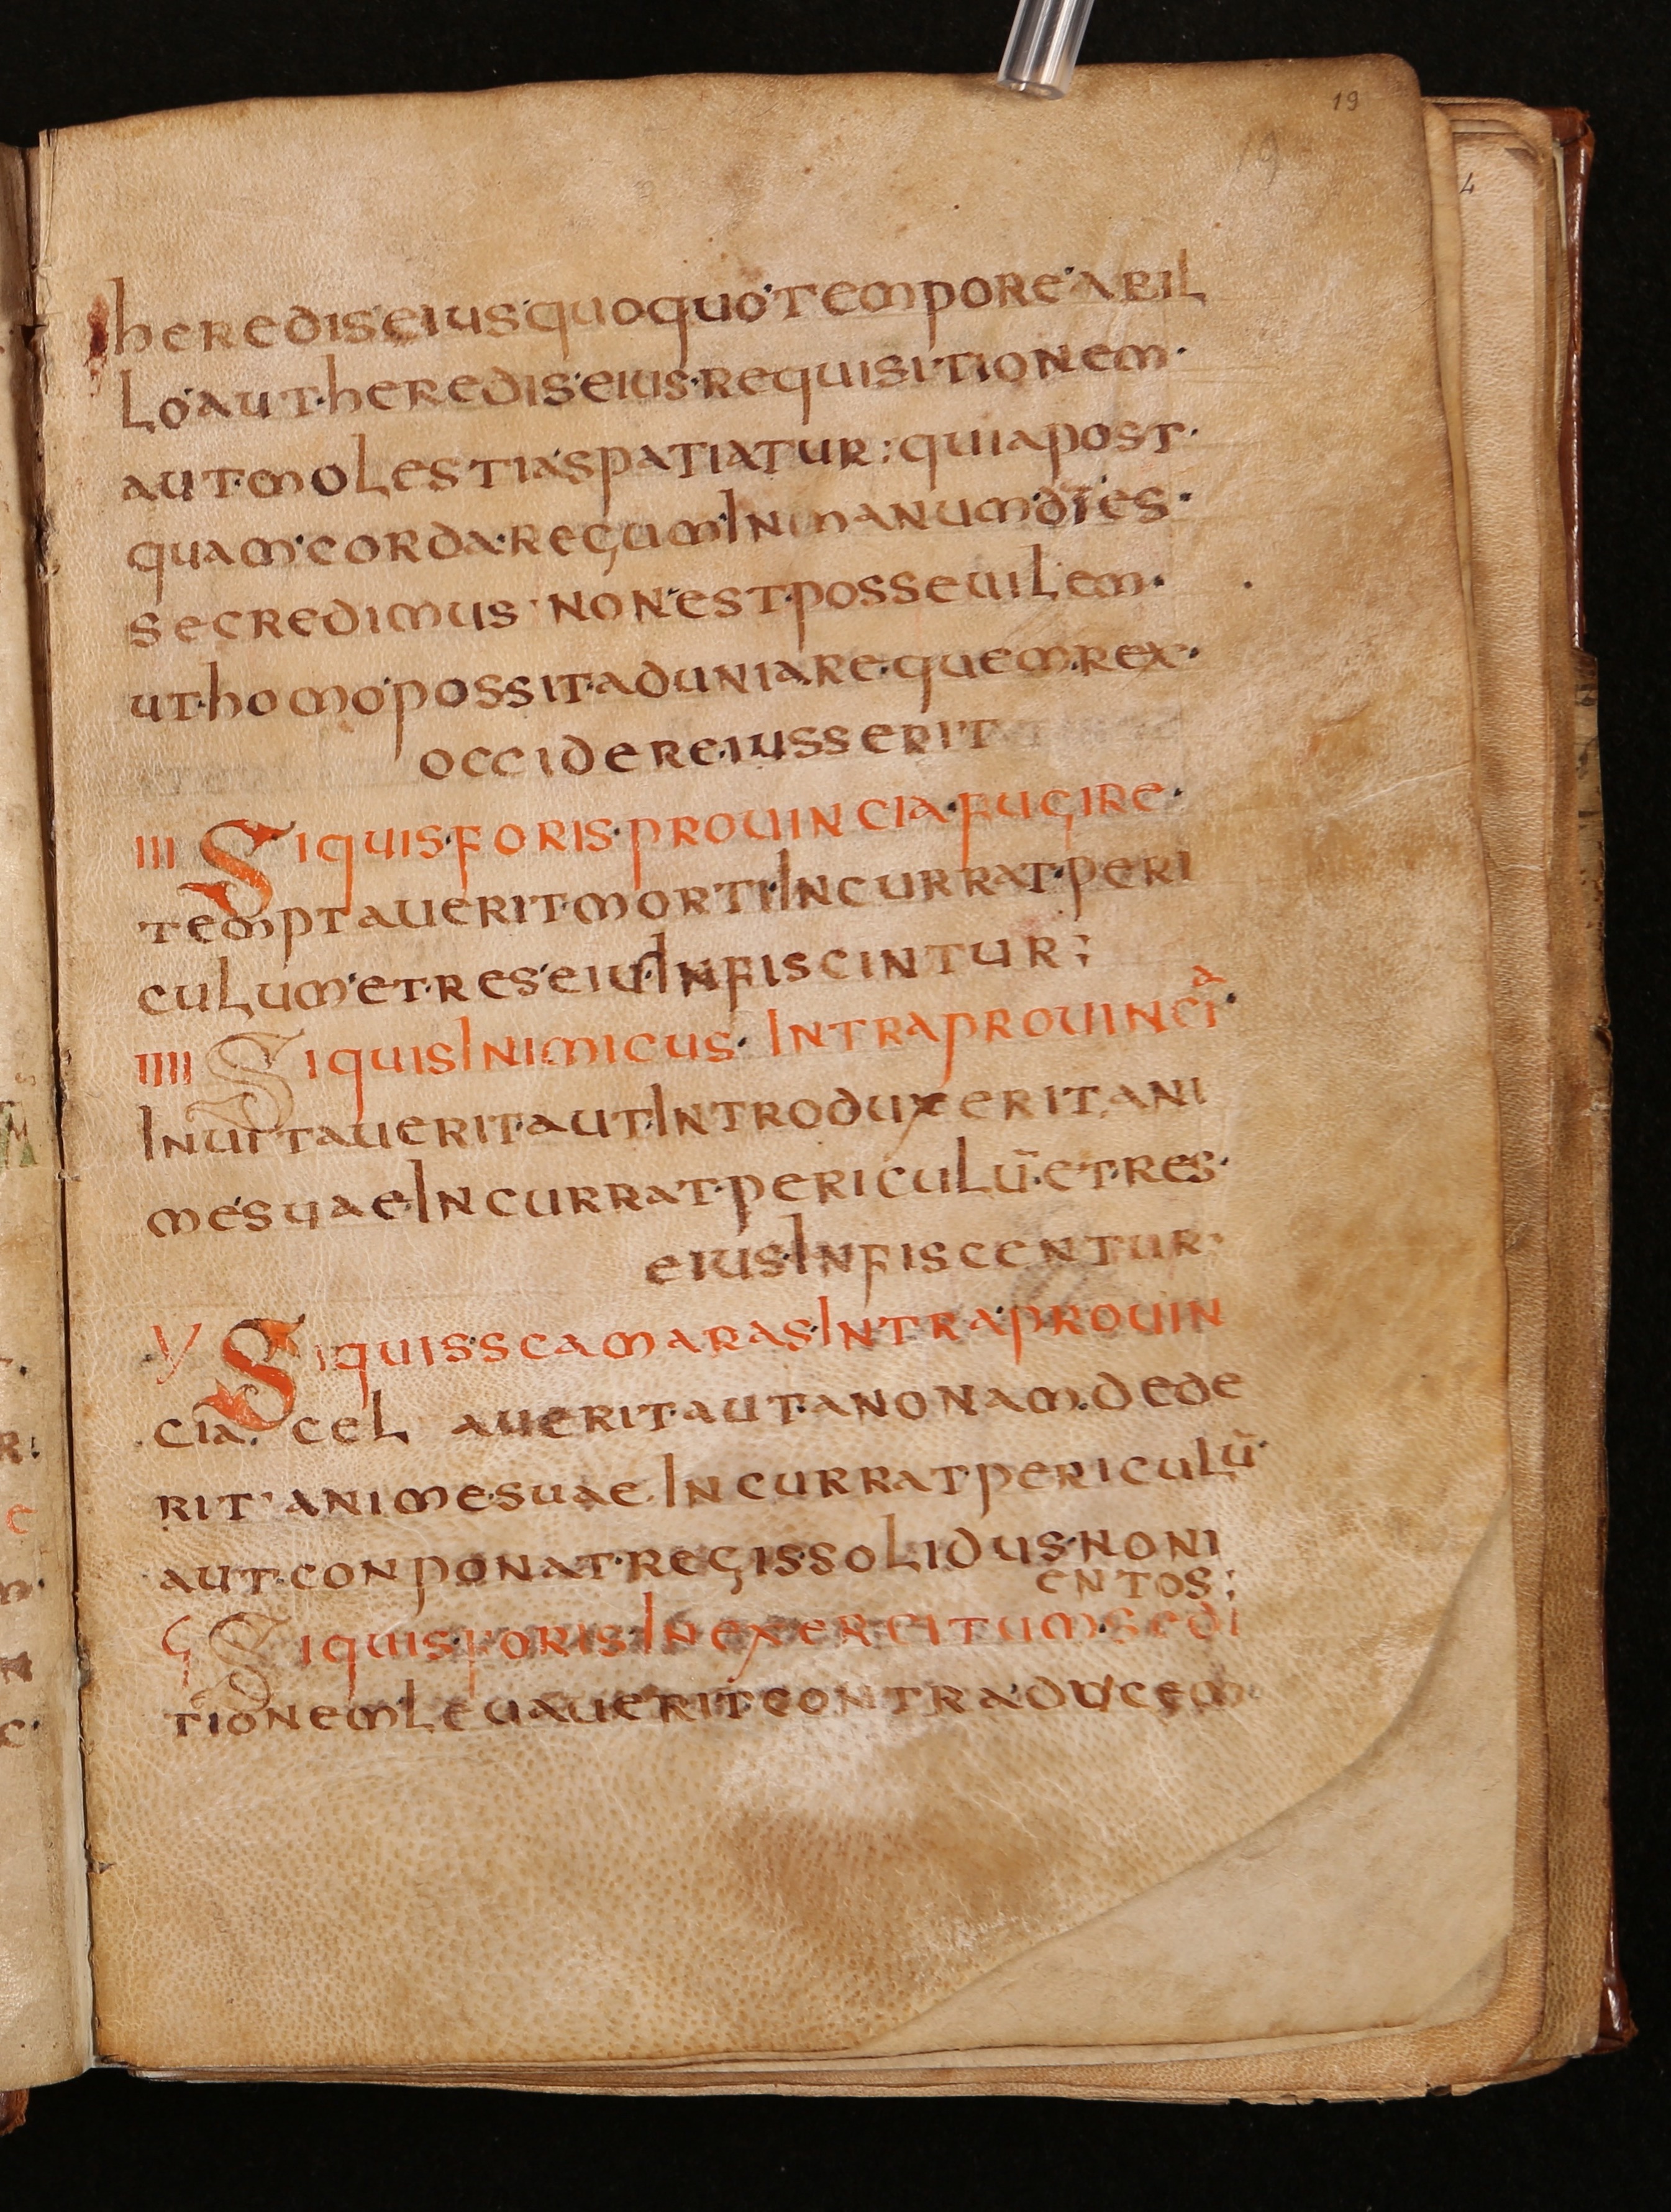 19
19
heredis eius quoquo tempore ab il
lo aut heredis eius requisitionem·
aut molestias patiatur: quia post·
quam corda regum in manum dī es·
se credimus· non est posseuilem·
ut homo possit aduniare quem rex·
occidere iusserit
III Si quis foris prouincia fugire·
temptauerit morti incurrat peri
culum et res eius infiscintur;
IIII Si quis inimicus· intra prouincia·
inuitauerit aut introduxerit ani
me suae incurrat periculū et res·
eius infiscentur·
V Si quis scamaras intra prouin
cia· cel auerit aut anonam dede
rit· anime suae incurrat periculū·
aut conponat regis solidus noni
entos;
Ϛ Si quis foris in exercitum sedi
tionem leuauerit contra ducem
4